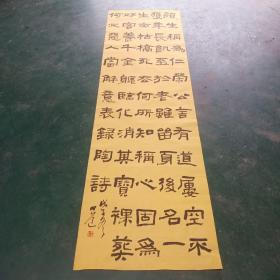 顏生稱為仁榮公言有道屢空不
獲年長飢至於老雖留身後名一
生亦枯槁死去何所知稱心固為
好客養千金軀臨化消其寶裸葬
何必惡人當解意表錄陶詩